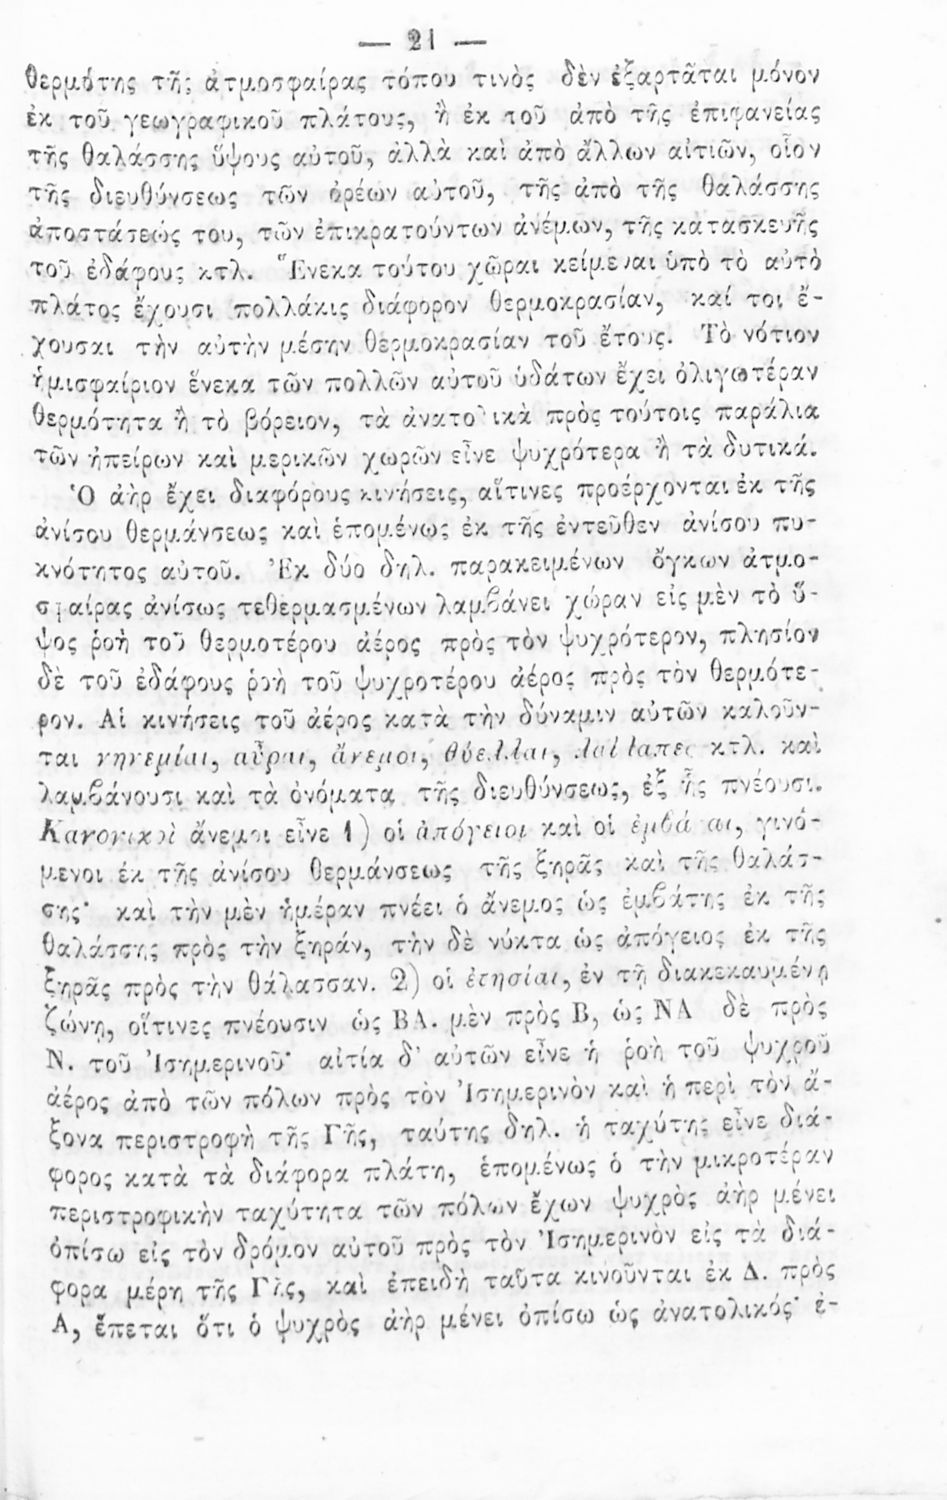 — 21 —
θερμότης τῆς ἀτμοσφαίρας τόπου τινὸς δὲν ἐξαρτᾶται μόνον
ἐκ τοῦ γεωγραφικοῦ πλάτους, ἢ ἐκ τοῦ ἀπὸ τῆς ἐπιφανείας
τῆς θαλάσσης ὕψους αὐτοῦ, ἀλλὰ καὶ ἀπὸ ἄλλων αἰτιῶν, οἷον
τῆς διευθύνσεως τῶν ὀρέων αὐτοῦ, τῆς ἀπὸ τῆς θαλάσσης
ἀποστάσεώς του, τῶν ἐπικρατούντων ἀνέμων, τῆς κατασκευῆς
τοῦ ἐδάφους κτλ. Ἕνεκα τούτου χῶραι κείμεναι ὑπὸ τὸ αὐτὸ
πλάτος ἔχουσι πολλάκις διάφορον θερμοκρασίαν, καί τοι ἔ-
χουσαι τὴν αὐτὴν μέσην θερμοκρασίαν τοῦ ἔτους. Τὸ νότιον
ἡμισφαίριον ἕνεκα τῶν πολλῶν αὐτοῦ ὑδάτων ἔχει ὀλιγωτέραν
θερμότητα ἢ τὸ βόρειον, τὰ ἀνατολικὰ πρὸς τούτοις παράλια
τῶν ἠπείρων καὶ μερικῶν χωρῶν εἶνε ψυχρότερα ἢ τὰ δυτικά.
Ὁ ἀὴρ ἔχει διαφόρους κινήσεις, αἵτινες προέρχονται ἐκ τῆς
ἀνίσου θερμάνσεως καὶ ἑπομένως ἐκ τῆς ἐντεῦθεν ἀνίσου πυ-
κνότητος αὐτοῦ. Ἐκ δύο δηλ. παρακειμένων ὄγκων ἀτμο-
σφαίρας ἀνίσως τεθερμασμένων λαμβάνει χώραν εἰς μὲν τὸ ὕ-
ψος ῥοὴ τοῦ θερμοτέρου ἀέρος πρὸς τὸν ψυχρότερον, πλησίον
δὲ τοῦ ἐδάφους ῥοὴ τοῦ ψυχροτέρου ἀέρος πρὸς τὸν θερμότε-
ρον. Αἱ κινήσεις τοῦ ἀέρος κατὰ τὴν δύναμιν αὐτῶν καλοῦν-
ται νηνεμίαι, αὖραι, ἄνεμοι, θύελλαι, λαίλαπες κτλ. καὶ
λαμβάνουσι καὶ τὰ ὀνόματα τῆς διευθύνσεως, ἐξ ἧς πνέουσι.
Κανονικοὶ ἄνεμοι εἶνε 1) οἱ ἀπόγειοι καὶ οἱ ἐμβάται, γινό-
μενοι ἐκ τῆς ἀνίσου θερμάνσεως τῆς ξηρᾶς καὶ τῆς θαλάσ-
σης· καὶ τὴν μὲν ἡμέραν πνέει ὁ ἄνεμος ὡς ἐμβάτης ἐκ τῆς
θαλάσσης πρὸς τὴν ξηράν, τὴν δὲ νύκτα ὡς ἀπόγειος ἐκ τῆς
ξηρᾶς πρὸς τὴν θάλασσαν. 2) οἱ ἐτησίαι, ἐν τῇ διακεκαυμένῃ
ζώνῃ, οἵτινες πνέουσιν ὡς ΒΑ. μὲν πρὸς Β, ὡς ΝΑ δὲ πρὸς
Ν. τοῦ Ἰσημερινοῦ· αἰτία δ' αὐτῶν εἶνε ἡ ῥοὴ τοῦ ψυχροῦ
ἀέρος ἀπὸ τῶν πόλων πρὸς τὸν Ἰσημερινὸν καὶ ἡ περὶ τὸν ἄ-
ξονα περιστροφὴ τῆς Γῆς, ταύτης δηλ. ἡ ταχύτης εἶνε διά-
φορος κατὰ τὰ διάφορα πλάτη, ἑπομένως ὁ τὴν μικροτέραν
περιστροφικὴν ταχύτητα τῶν πόλων ἔχων ψυχρὸς ἀὴρ μένει
ὀπίσω εἰς τὸν δρόμον αὐτοῦ πρὸς τὸν Ἰσημερινὸν εἰς τὰ διά-
φορα μέρη τῆς Γῆς, καὶ ἐπειδὴ ταῦτα κινοῦνται ἐκ Δ. πρὸς
Α, ἕπεται ὅτι ὁ ψυχρὸς ἀὴρ μένει ὀπίσω ὡς ἀνατολικός· ἐ-